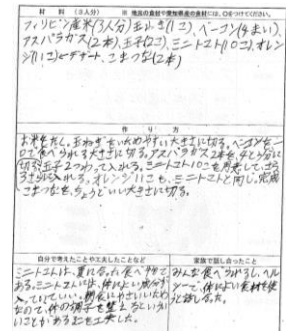 材 料 (3人分) ※ 地元の食材や愛知県産の食材には、○をつけてください。
フィリピン産米(3人分)玉ねぎ(1こ)、ベーコン(4まい)、
アスパラガス(2本)、玉子(2こ)、ミニトマト(10こ)、オレン
ジ(1こ)←デザート、こまつな(2本)
作 り 方
お米をだし、玉ねぎをいためやすい大きさに切る。ベーコンを一
口で食べられる大きさに切る。アスパラガス2本を、4とう分に
切る。玉子2つわって入れる。ミニトマト10こを用意して、さら
に入れる。オレンジ1こも、ミニトマトと同じ。完成
こまつなを、ちょうどいい大きさに切る。
自分で考えたことや工夫したことなど
家族で話し合ったこと
ミニトマトは、夏に
ある。ミニトマトには、体によい成分が
入っていていい。
なので、体の調子を整えるという
いことがあることを工夫した。
みんな食べられるし、ヘル
シーで、体によい食材を使
と話した。